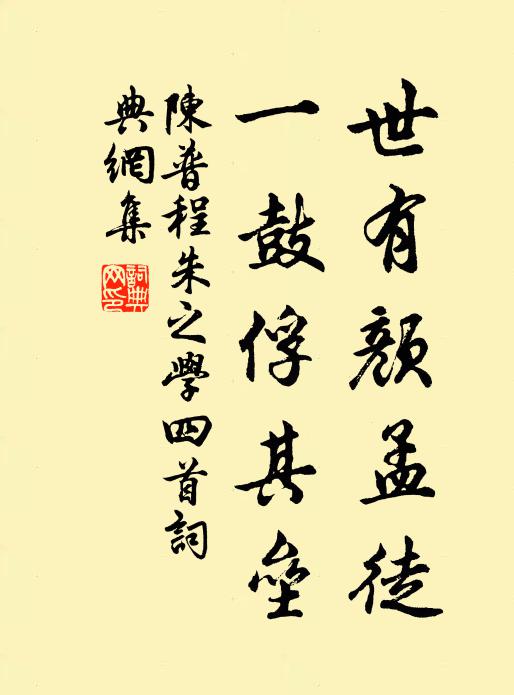 世有顏孟徒
一鼓俘其壘
陳普程朱之學四首詞
典網集
詞典網印